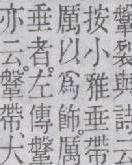 鞶裂與
按小雅垂帶
厲以爲飾。厲
垂者。左傳鞶
亦云。鞶帶、大